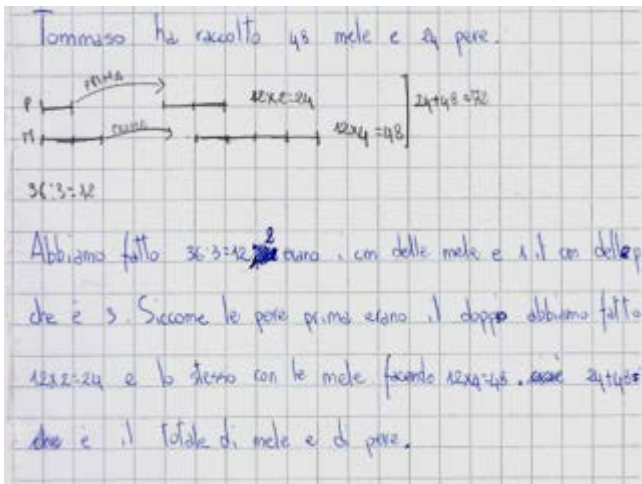 Tommaso ha raccolto 48 mele e 24 pere.
P PRIMA 12x2=24 24+48=72
M PRIMA 12x4=48
36:3=12
Abbiamo fatto 36:3=12 2 erano i cm delle mele e 1 il cm delle p
che è 3. Siccome le pere prima erano il doppio abbiamo fatto
12x2=24 e lo stesso con le mele facendo 12x4=48. 24+48=
che è il totale di mele e di pere.